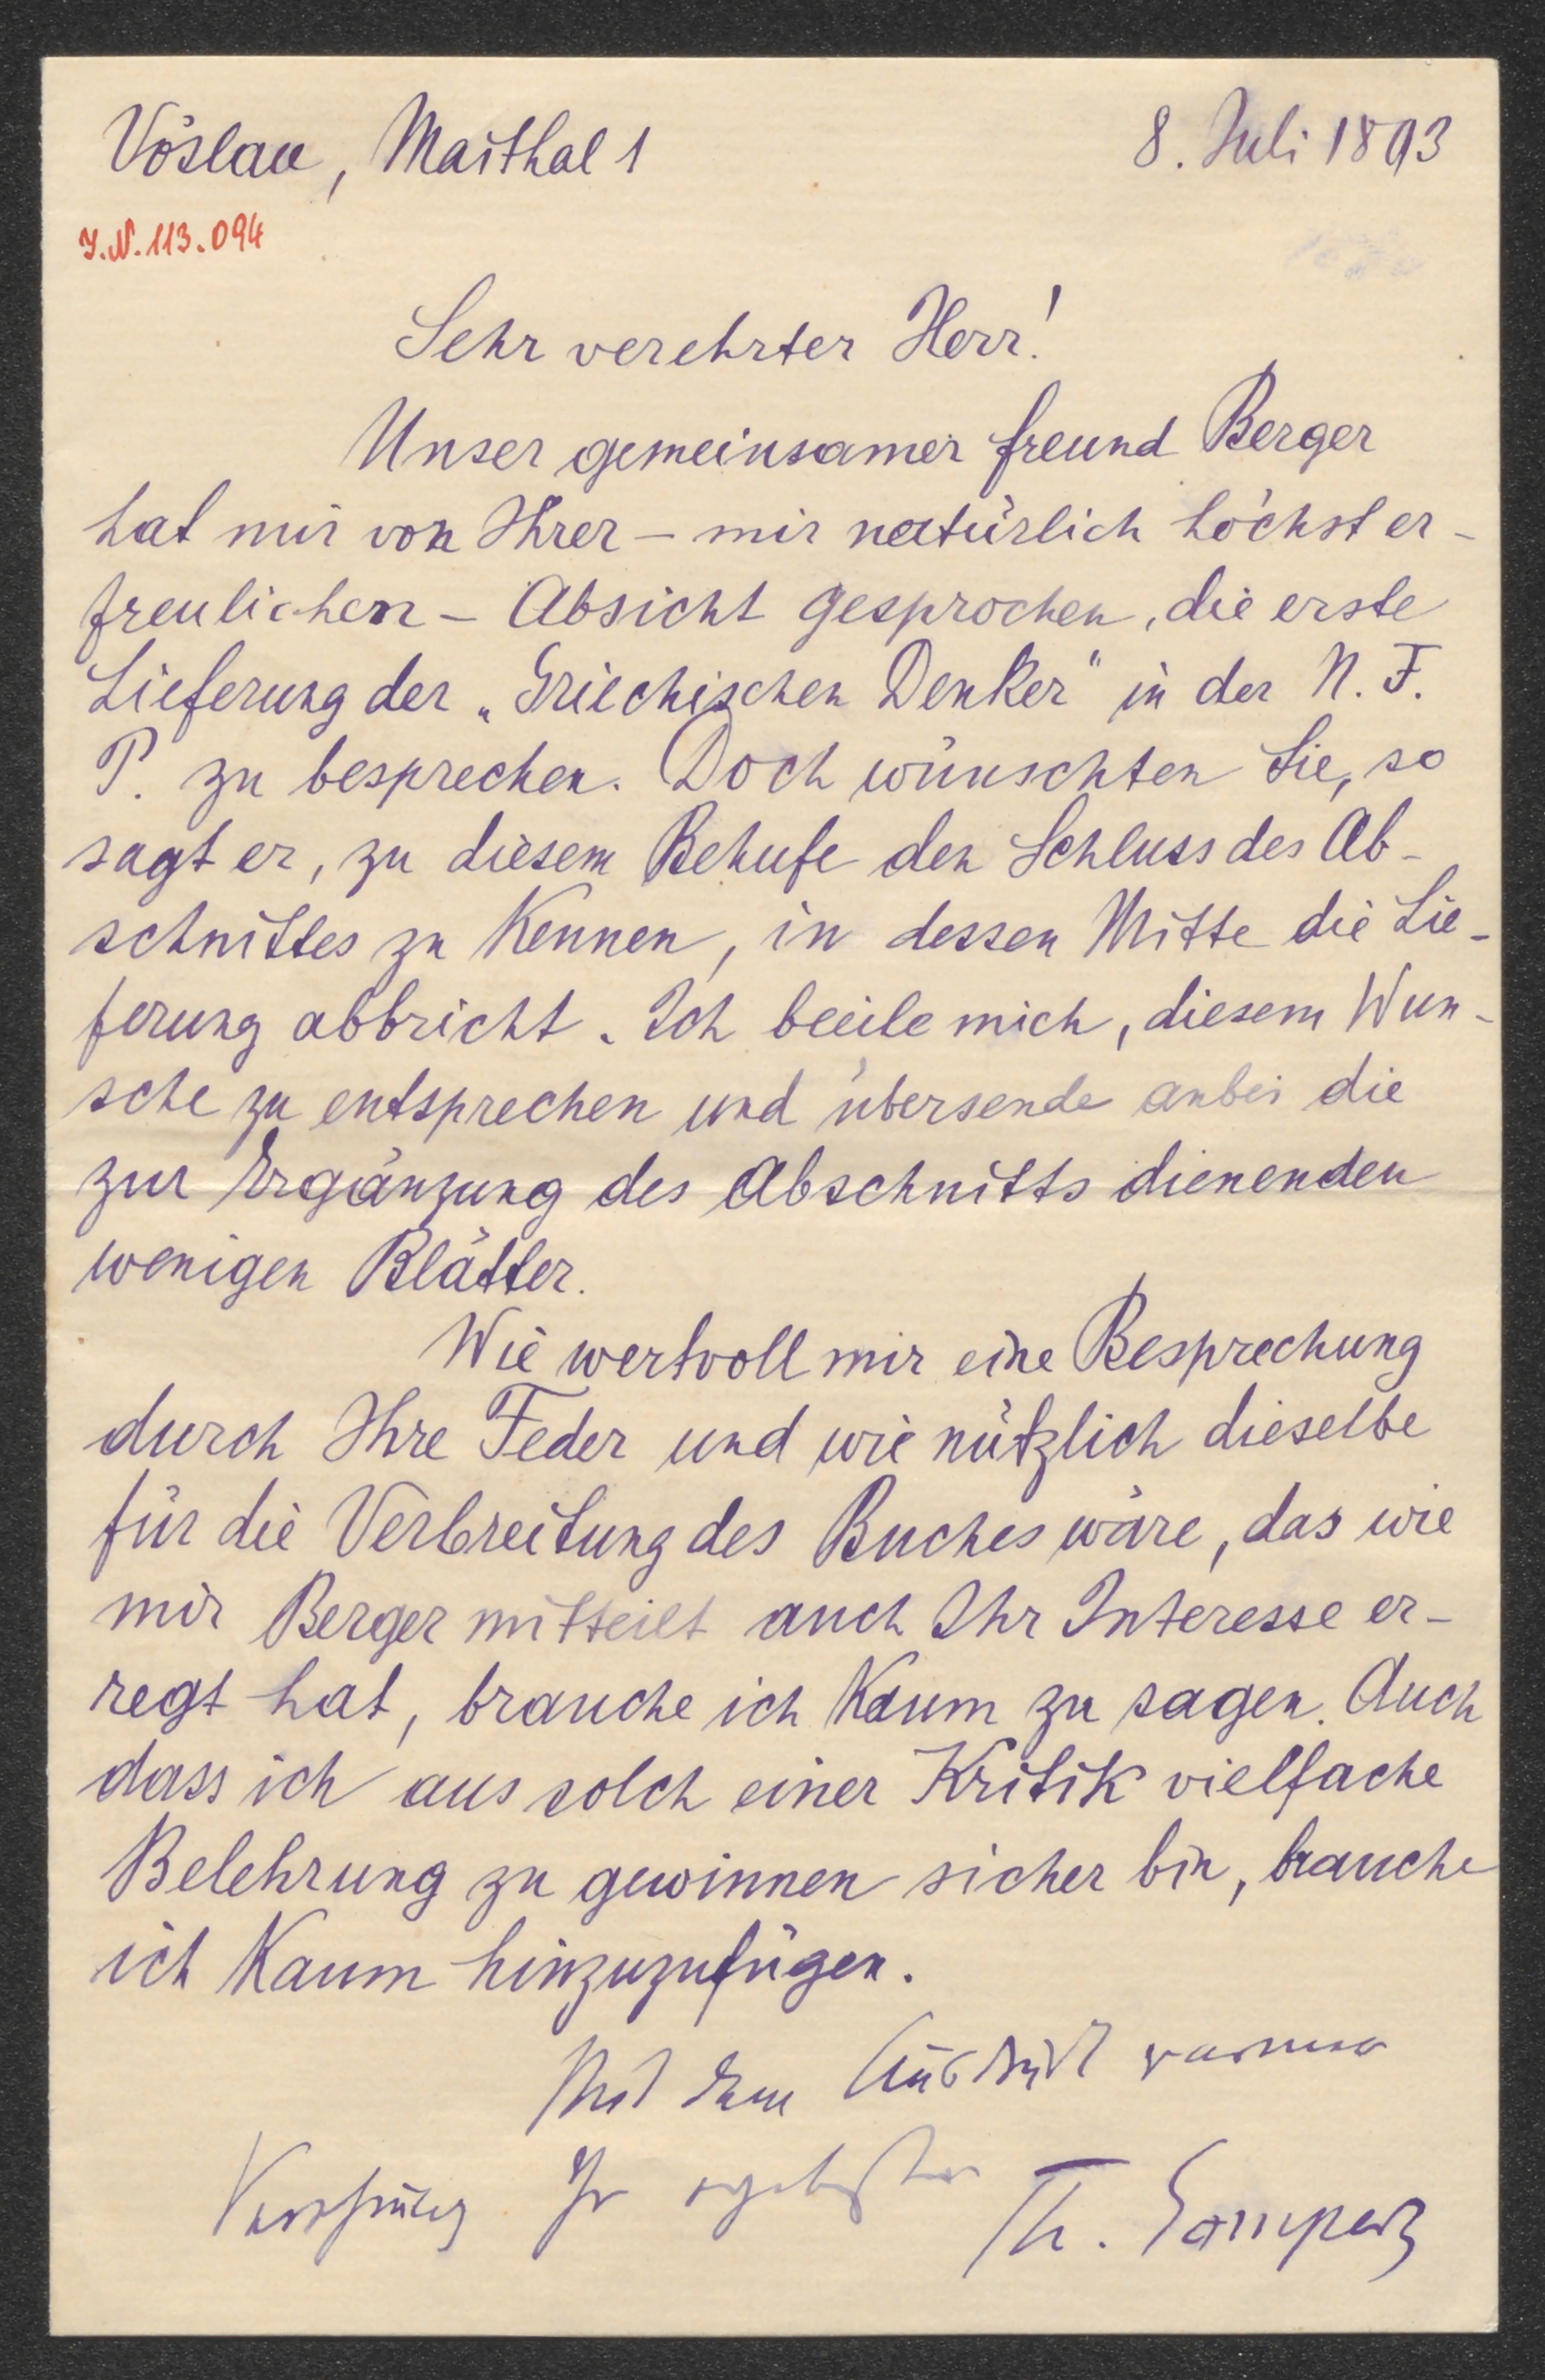 Vöslau, Maithal 1
8. Juli 1893
I.N. 113.094
Sehr verehrter Herr!
Unser gemeinsamer Freund Berger
hat mir von Ihrer – mir natürlich höchst er-
freulichen – Absicht gesprochen, die erste
Lieferung der „Griechischen Denker" in der N. F.
P. zu besprechen. Doch wünschten Sie, so
sagt er, zu diesem Behufe den Schluss des Ab-
schnittes zu kennen, in dessen Mitte die Lie-
ferung abbricht. Ich beeile mich, diesem Wun-
sche zu entsprechen und übersende anbei die
zur Ergänzung des Abschnitts dienenden
wenigen Blätter.
Wie wertvoll mir eine Besprechung
durch Ihre Feder und wie nützlich dieselbe
für die Verbreitung des Buches wäre, das wie
mir Berger mitteilt auch Ihr Interesse er-
regt hat, brauche ich kaum zu sagen. Auch
dass ich aus solch einer Kritik vielfache
Belehrung zu gewinnen sicher bin, brauche
ich kaum hinzuzufügen.
Mit dem Ausdruck warmer
Verehrung Ihr ergebenster
Th. Gomperz